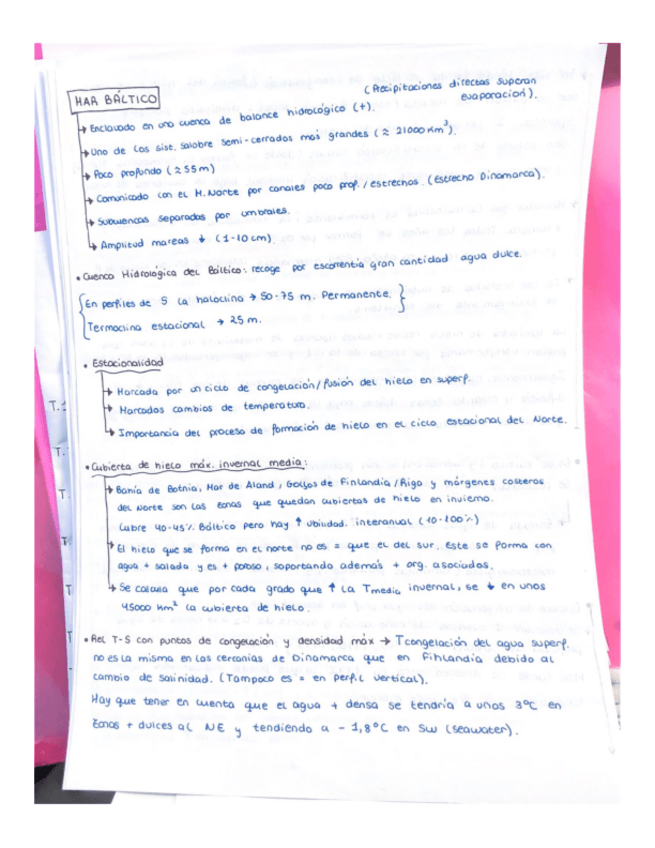 MAR BÁLTICO
(Precipitaciones directas superan evaporación).
→ Enclavado en una cuenca de balance hidrológico (+).
→ Uno de los sist. salobre semi-cerrados más grandes (≈ 21000 Km³).
→ Poco profundo (≈ 55m)
→ Comunicado con el M. Norte por canales poco prof. / estrechos. (Estrecho Dinamarca).
→ Subcuencas separadas por umbrales.
→ Amplitud mareas ↓ (1-10 cm).
• Cuenca Hidrológica del Báltico: recoge por escorrentía gran cantidad agua dulce.
{En perfiles de S la haloclina → 50-75 m. Permanente.}
Termoclina estacional → 25 m.
• Estacionalidad
→ Marcada por un ciclo de congelación/fusión del hielo en superf.
→ Marcados cambios de temperatura.
→ Importancia del proceso de formación de hielo en el ciclo estacional del Norte.
• Cubierta de hielo máx. invernal media:
→ Bahía de Botnia, Mar de Aland, Golfos de Finlandia/Riga y márgenes costeros
del Norte son las zonas que quedan cubiertas de hielo en invierno.
Cubre 40-45% Báltico pero hay ↑ vbilidad. interanual (10-100%)
→ El hielo que se forma en el norte no es = que el del sur. Este se forma con
agua + salada y es + poroso, soportando además + org. asociados.
→ Se calcula que por cada grado que ↑ la Tmedia invernal, se ↓ en unos
45000 Km² la cubierta de hielo.
• Rel T-S con puntos de congelación y densidad máx → Tcongelación del agua superf.
no es la misma en las cercanías de Dinamarca que en Finlandia debido al
cambio de salinidad. (Tampoco es = en perfil vertical).
Hay que tener en cuenta que el agua + densa se tendría a unos 3ºC en
zonas + dulces al NE y tendiendo a - 1,8ºC en SW (seawater).
T.
T.
T.
T
T
T